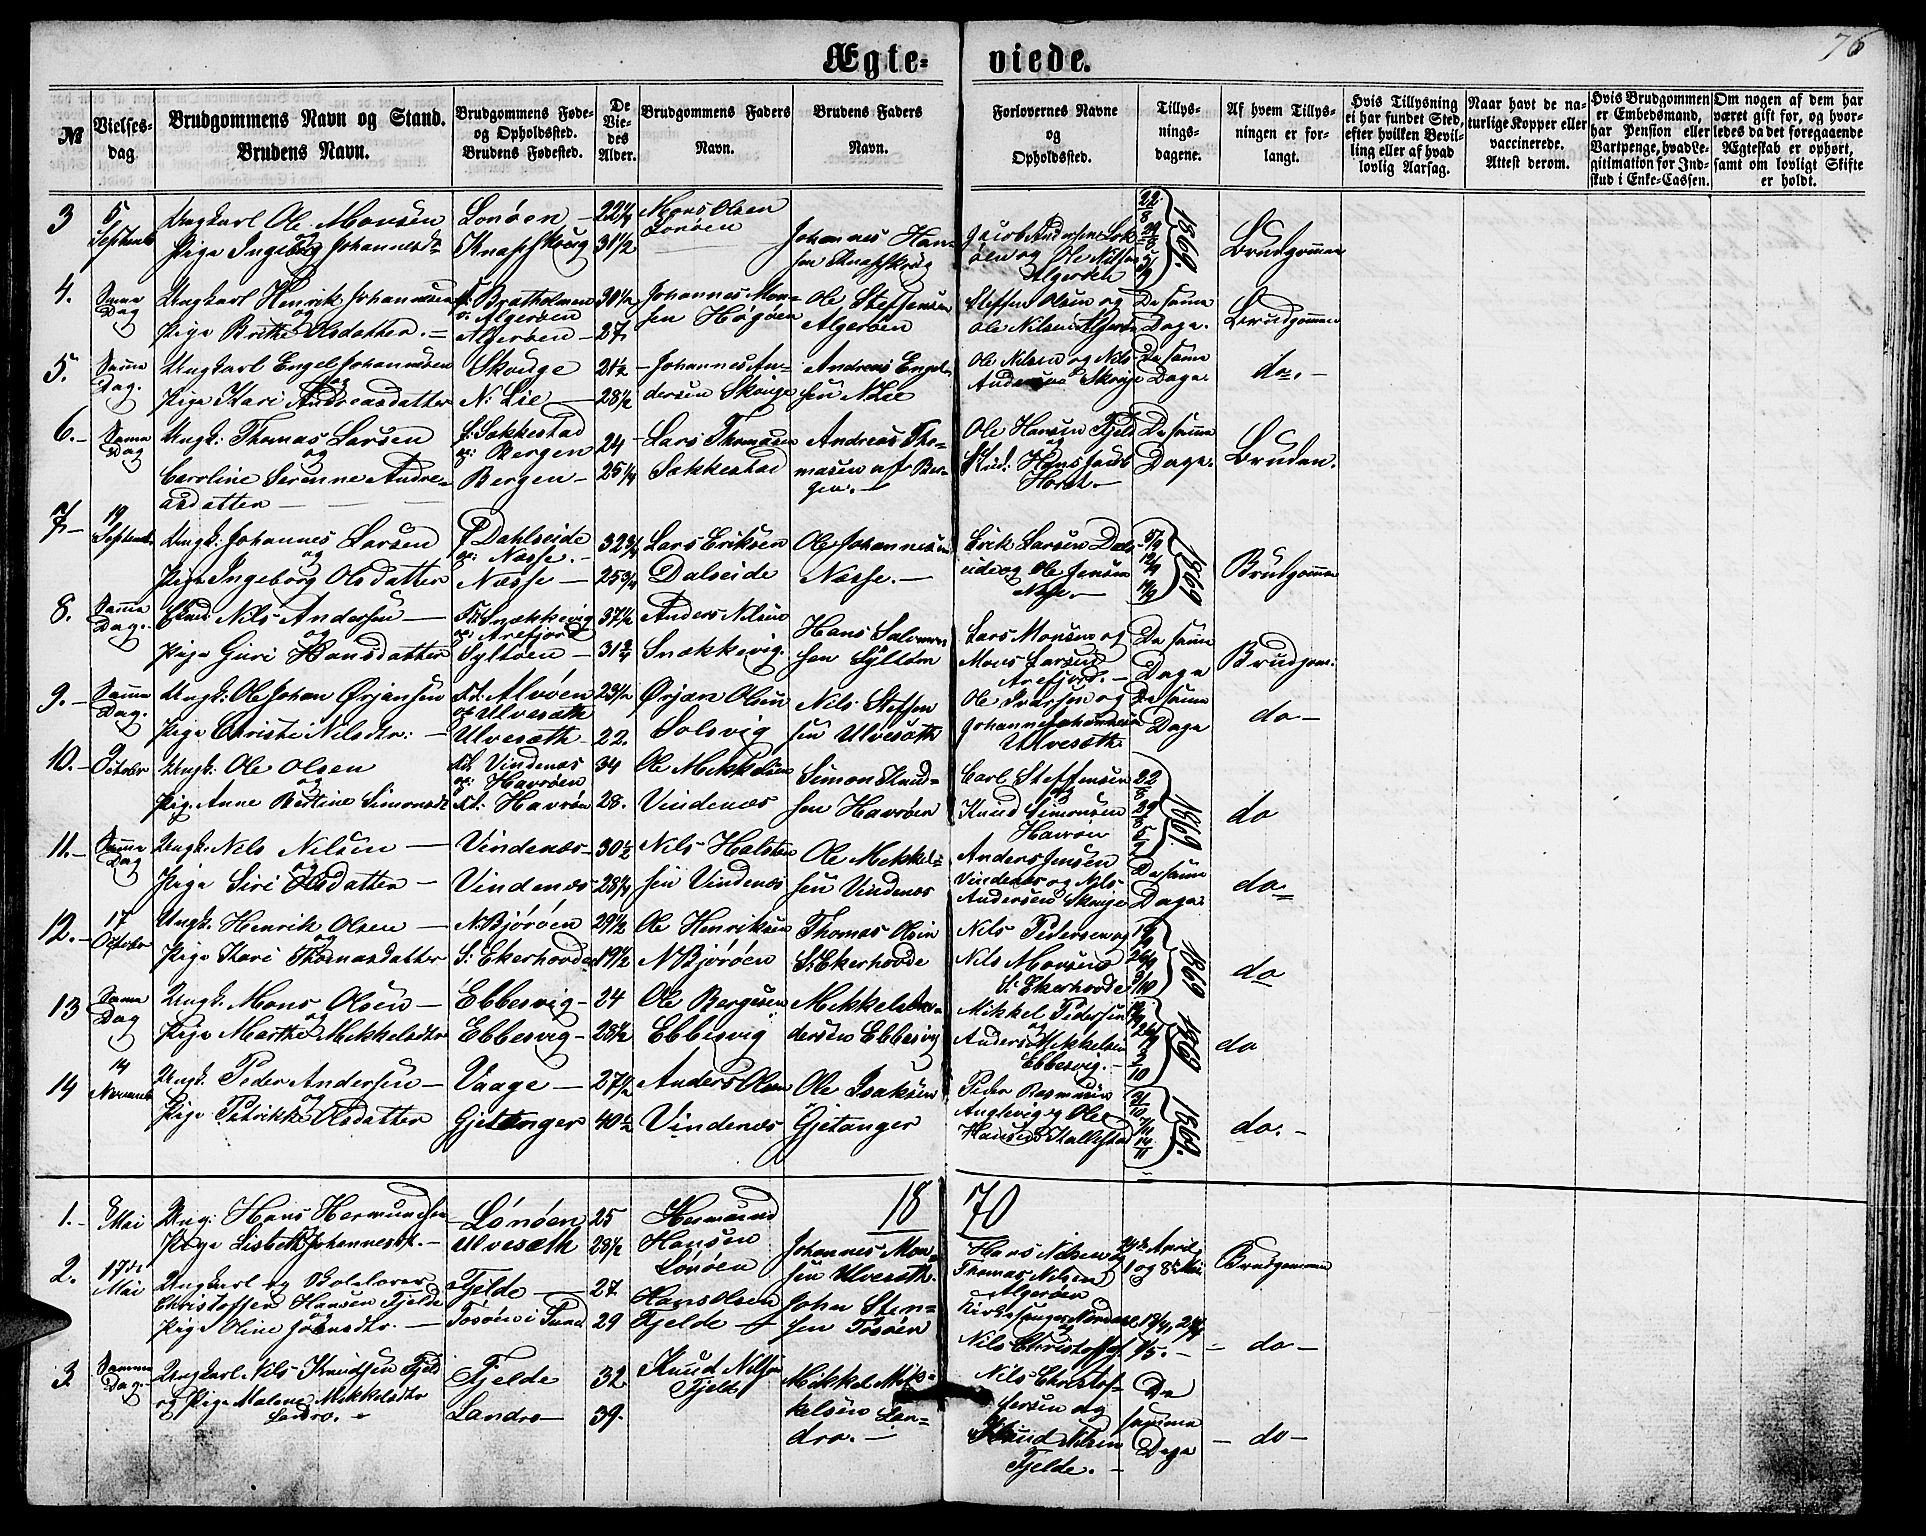 76
Ægte- viede.
№
Vielses-dag.
Brudgommens Navn og Stand.
Brudens Navn.
Brudgommens Føde- og Opholdssted.
Brudens Fødested.
De Viedes Alder.
Brudgommens Faders Navn.
Brudens Faders Navn.
Forlovernes Navne og Opholdssted.
Tillysningsdagene.
Af hvem Tillysningen er forlangt.
Hvis Tillysning ei har fundet Sted, efter hvilken Bevilling eller af hvad lovlig Aarsag.
Naar havt de naturlige Kopper eller vaccinerede. Attest derom.
Hvis Brudgommen er Embedsmand, har Pension eller Vartpenge, hvad Legitimation for Indskud i Enke-Cassen.
Om nogen af dem har været gift for, og hvorledes da det foregaaende Ægteskab er ophørt, samt om lovligt Skifte er holdt.
3 5 Septemb Ungkarl Ole Monsen Lonøen 22 1/4 Mons Olsen Lonøen 22/8 29/8 5/9 1869.
og Pige Ingeborg Johannesdt Knapskoug 31 1/2 Johannes Hansen Knapskoug Jacob Andersen og Ole Nilsen Algerøen Brudgommen
4. Samme Dag Ungkarl Henrik Johannesen f: Bratholmen o: Algerøen 30 1/2 Johannes Monsen Høgøen Ole Steffensen Algerøen Steffen Olsen og Ole Nilsen Algerøen De samme Dage. Brudgommen
og Pige Brithe Olsdatter. Algerøen 27
5. Samme Dag. Ungkarl Engel Johannesen Skouge 21 1/2 Johannes Andersen Skouge Andreas Engelsen N: Lie Ole Nilsen og Nils Andersen Skouge De samme Dage. do.
og Pige Kari Andreasdatter N: Lie 28 1/2
6. Samme Dag Ungk: Thomas Larsen f: Sækkestad o: Bergen 24 Lars Thomasen Sækkestad Andreas Thomasen af Bergen. Ole Hansen Fjeld og Stud: Hans Jacob Horst. De samme Dage. Bruden.
og Caroline Serenne Andreasdatter Bergen 25 1/4
7. 19 Septemb. Ungk: Johannes Larsen f Dahlseide o: Næsse. 32 3/4 Lars Eriksen Dalseide Ole Johannesen Næsse. Erik Larsen Dalseide og Ole Jensen Næsse. 5/9 12/9 19/9 1869 Brudgommen
og Pige Ingeborg Olsdatter Næsse 25 3/4
8. Samme Dag. Nils Andersen Snækkevig o: Arefjord 37 1/2 Anders Nilsen Snækkevig. Hans Salomonsen Syltøen Lars Monsen og Mons Larsen Arefjord. De samme Dage Brudgom.
og Pige Guri Hansdatter Syltøen 31 3/4
9. Samme Dag. Ungk: Ole Johan Ørjansen Alvøen o: Ulvesæth 23 1/2 Ørjan Olsen Solsvig Nils Steffensen Ulvesæth Ole Iversen og Johannes Johannesen Ulvesæth. De samme Dage do
Pige Christi Nilsdtr: Ulvesæth 22.
10. 9 October Ungk: Ole Olsen Vindenæs o: Havrøen 34 Ole Mikkelsen Vindenæs Simon Knudsen Havrøen Carl Steffensen og Knud Simonsen Havrøen 22/8 29/8 5/9 1869. do
og Pige Anne Bertine Simonsdt Havrøen 28.
11. Samme Dag Ungk: Nils Nilsen Vindenæs 30 1/2 Nils Halstensen Vindenæs Ole Mikkelsen Vindenæs Anders Jensen Vindenæs og Nils Andersen Skouge De samme Dage. do.
og Pige Siri Olsdatter Vindenæs 28 1/4
12. 17 October Ungk: Henrik Olsen N: Bjørøen 29 1/2 Ole Henriksen N Bjørøen Thomas Olsen S: Ekerhovde Nils Pedersen og Nils Monsen S: Ekerhovde 19/9 26/9 3/10 1869 do
og Pige Kari Thomasdatter S: Ekerhovde 19 1/2
13 Samme Dag Ungk: Mons Olsen Ebbesvig 24 Ole Bergesen Ebbesvig Mikkel Andersen Ebbesvig Mikkel Pedersen og Anders Mikkelsen Ebbesvig. 19/9 26/9 3/10 1869 do
og Pige Marthe Mikkelsdtr Ebbesvig 28 1/2
14 14 Novemb Ungk. Peder Andersen Vaage 27 1/2 Anders Olsen Vindenæs Ole Isaksen Gjetanger Peder Rasmusen Anglevig og Ole Hansen Kallestad 31/10 7/11 14/11 1869. do.
og Pige Petrikke Olsdatter Gjetanger 40 1/2
1870
1. 8 Mai Ung: Hans Hermundsen Lonøen 25 Hermund Hansen Lonøen Johannes Monsen Ulvesæth. Hans Nilsen og Thomas Nilsen Algerøen April 1 og 8 Mai Brudgommen
Pige Lisbeth Johannesdt. Ulvesæth 28 1/2
2. 17de Mai Ungkarl og Skolelærer Christoffer Hansen Fjelde Fjelde 27. Hans Olsen Fjelde John Stensen Tosøen Kirkesanger og Nils Christoffersen 1/5. do
Pige Oline Johnsdtr. Tosøen i Sund 29
3. Samme Dag. Ungkarl Nils Knudsen Fjeld Fjelde 32 Knud Nilsen Fjeld Mikkel Mikkelsen Landro. Nils Christoffersen og Knud Nilsen Fjelde. De samme Dage do
og Pige Malene Mikkelsdtr Landro. Landro 39.